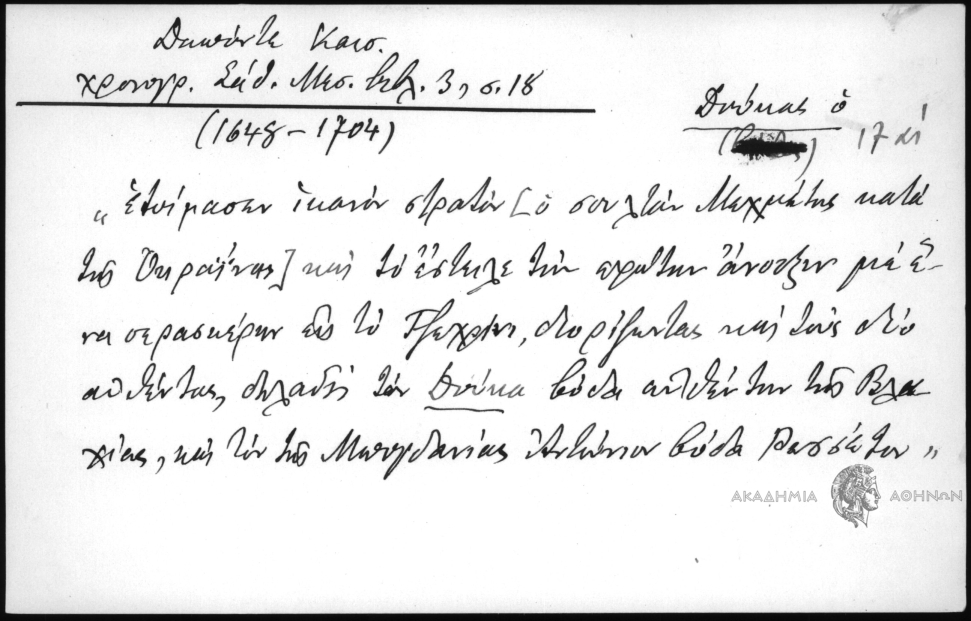 Δαπόντε Καισ.
χρονογρ. Σάθ. Μεσ. βιβλ. 3, σ. 18
(1648-1704)
Δούκας ὁ
17 αἰ
"ἑτοίμασεν ἱκανὸν στρατὸν [ὁ σουλτὰν Μεχμέτης κατὰ
τῆς Οὐκραΐνας] καὶ τὸ ἔστειλε τὴν πρώτην ἄνοιξιν μὲ ἕ-
να σερασκέρην εἰς τὸ Τζεχρίνι, διορίζωντας καὶ τοὺς δύο
αὐθέντας, δηλαδὴ τὸν Δούκα βόδα αὐθέντην τῆς Βλα-
χίας, καὶ τὸν τῆς Μπογδανίας Ἀντώνιον βόδα Ῥωσσέτον"
ΑΚΑΔΗΜΙΑ ΑΘΗΝΩΝ